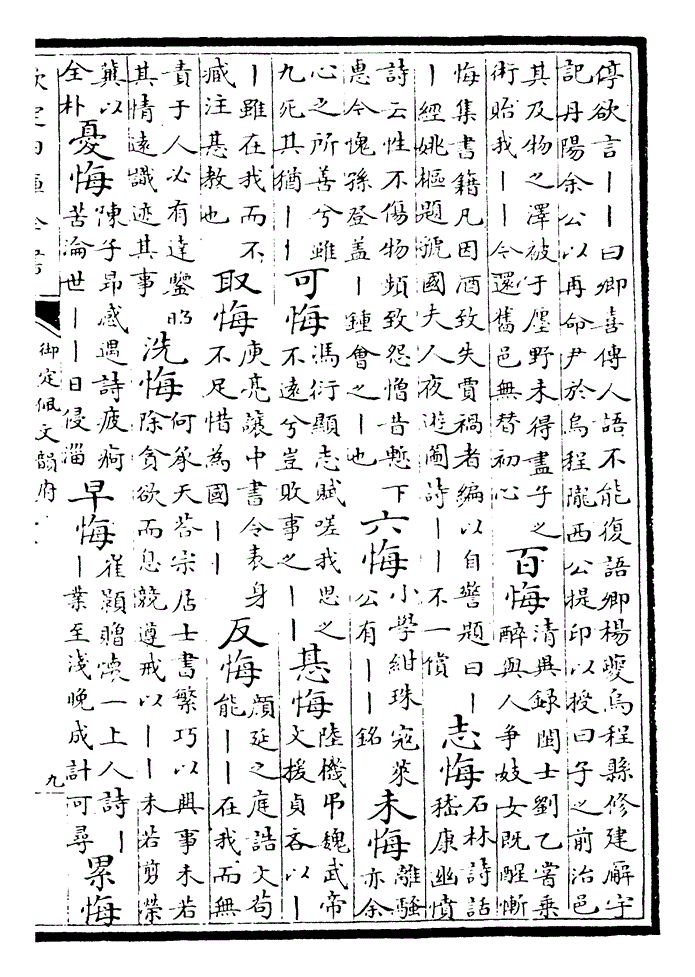 停欲言丨丨曰卿喜傳人語不能復語卿楊夔烏程縣修建廨宇
記丹陽余公以再命尹於烏程隴西公提印以授曰子之前治邑
其及物之澤被于廛野未得盡子之
術貽我丨丨今還舊邑無替初心
百悔
清異録閩士劉乙嘗乗
醉與人爭妓女既醒慚
悔集書籍凡因酒致失賈禍者編以自警題曰丨
丨經姚樞題虢國夫人夜遊圖詩丨丨不一償
志悔
石林詩話
嵇康幽憤
詩云性不傷物頻致怨憎昔慙下
惠今愧孫登蓋丨鍾會之丨也
六悔
小學紺珠寇萊
公有丨丨銘
未悔
離騷
亦余
心之所善兮雖
九死其猶丨丨
可悔
馮衍顯志賦嗟我思之
不遠兮豈敗事之丨丨
惎悔
陸機弔魏武帝
文援貞吝以丨
丨雖在我而不
臧注惎教也
取悔
庾亮讓中書令表身
不足惜為國丨丨
反悔
顔延之庭誥文苟
能丨丨在我而無
責于人必有達鑒昭
其情遠識迹其事
洗悔
何承天荅宗居士書繁巧以興事未若
除貪欲而息競遵戒以丨丨未若剪榮
冀以
全朴
憂悔
陳子昂感遇詩疲痾
苦淪世丨丨日侵淄
早悔
崔顥贈懷一上人詩丨
丨業至淺晚成計可尋
累悔
欽定四庫全書
御定佩文韻府
九